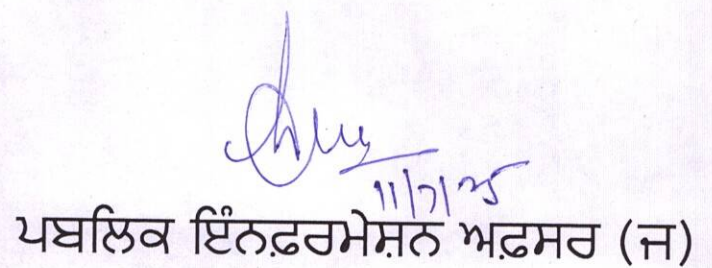 11/7/25
ਪਬਲਿਕ ਇੰਨਫ਼ਰਮੇਸ਼ਨ ਅਫ਼ਸਰ (ਜ)